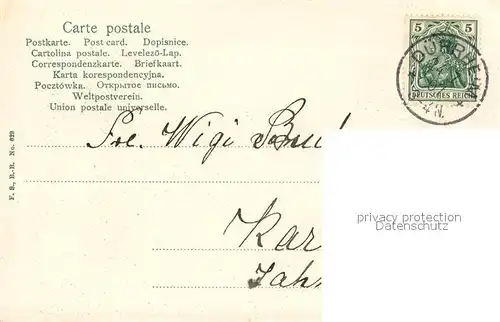 Carte postale
Postkarte. Post card. Dopisnice.
Cartolina postale. Levelező-Lap.
Correspondenzkarte. Briefkaart.
Karta korespondencyjna.
Pocztówka. Открытое письмо.
Weltpostverein.
Union postale universelle.
F. S., R.-R. No. 629
5 5
DEUTSCHES REICH
DÜRRHEIM
4 N.
Frl. Wigi
Kar
Jah
privacy protection
Datenschutz